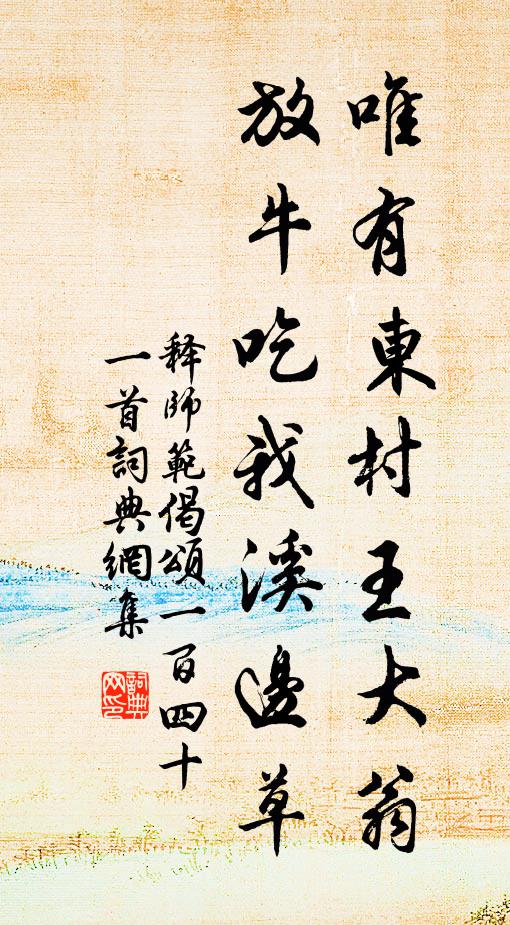 唯有東村王大翁
放牛吃我溪邊草
释師範偈頌一百四十
一首詞典網集
詞典
网印